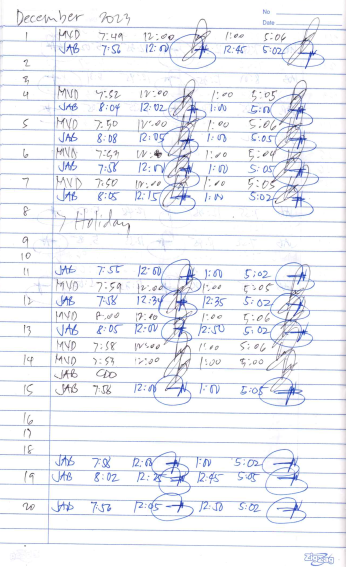 December 2023
No
Date
1 MVD 7:49 12:00 1:00 5:06
JAB 7:56 12:00 12:45 5:02
2
3
4 MVD 7:52 12:00 1:00 5:05
JAB 8:04 12:02 1:00
5 MVD 7:50 12:00 1:00 5:06
JAB 8:08 12:05 1:00 5:05
6 MVD 7:53 1:00 5:04
JAB 7:58 12:00 1:00 5:05
7 MVD 7:50 12:00 1:00 5:05
JAB 8:05 12:15 1:00 5:02
8 > Holiday
9
10
11 JAB 7:55 12:00 1:00 5:02
MVD 7:59 12:00 1:00 5:05
12 JAB 7:58 12:34 12:35 5:02
MVD 8:00 12:00 1:00 5:06
13 JAB 8:05 12:00 12:50 5:02
MVD 7:58 12:00 1:00 5:06
14 MVD 7:53 12:00 1:00 5:00
JAB CDO
15 JAB 7:58 12:00 1:00 5:05
16
17
18
JAB 7:58 1:00 5:02
19 JAB 8:02 12:45 5:05
20 JAB 7:56 12:05 12:50 5:02